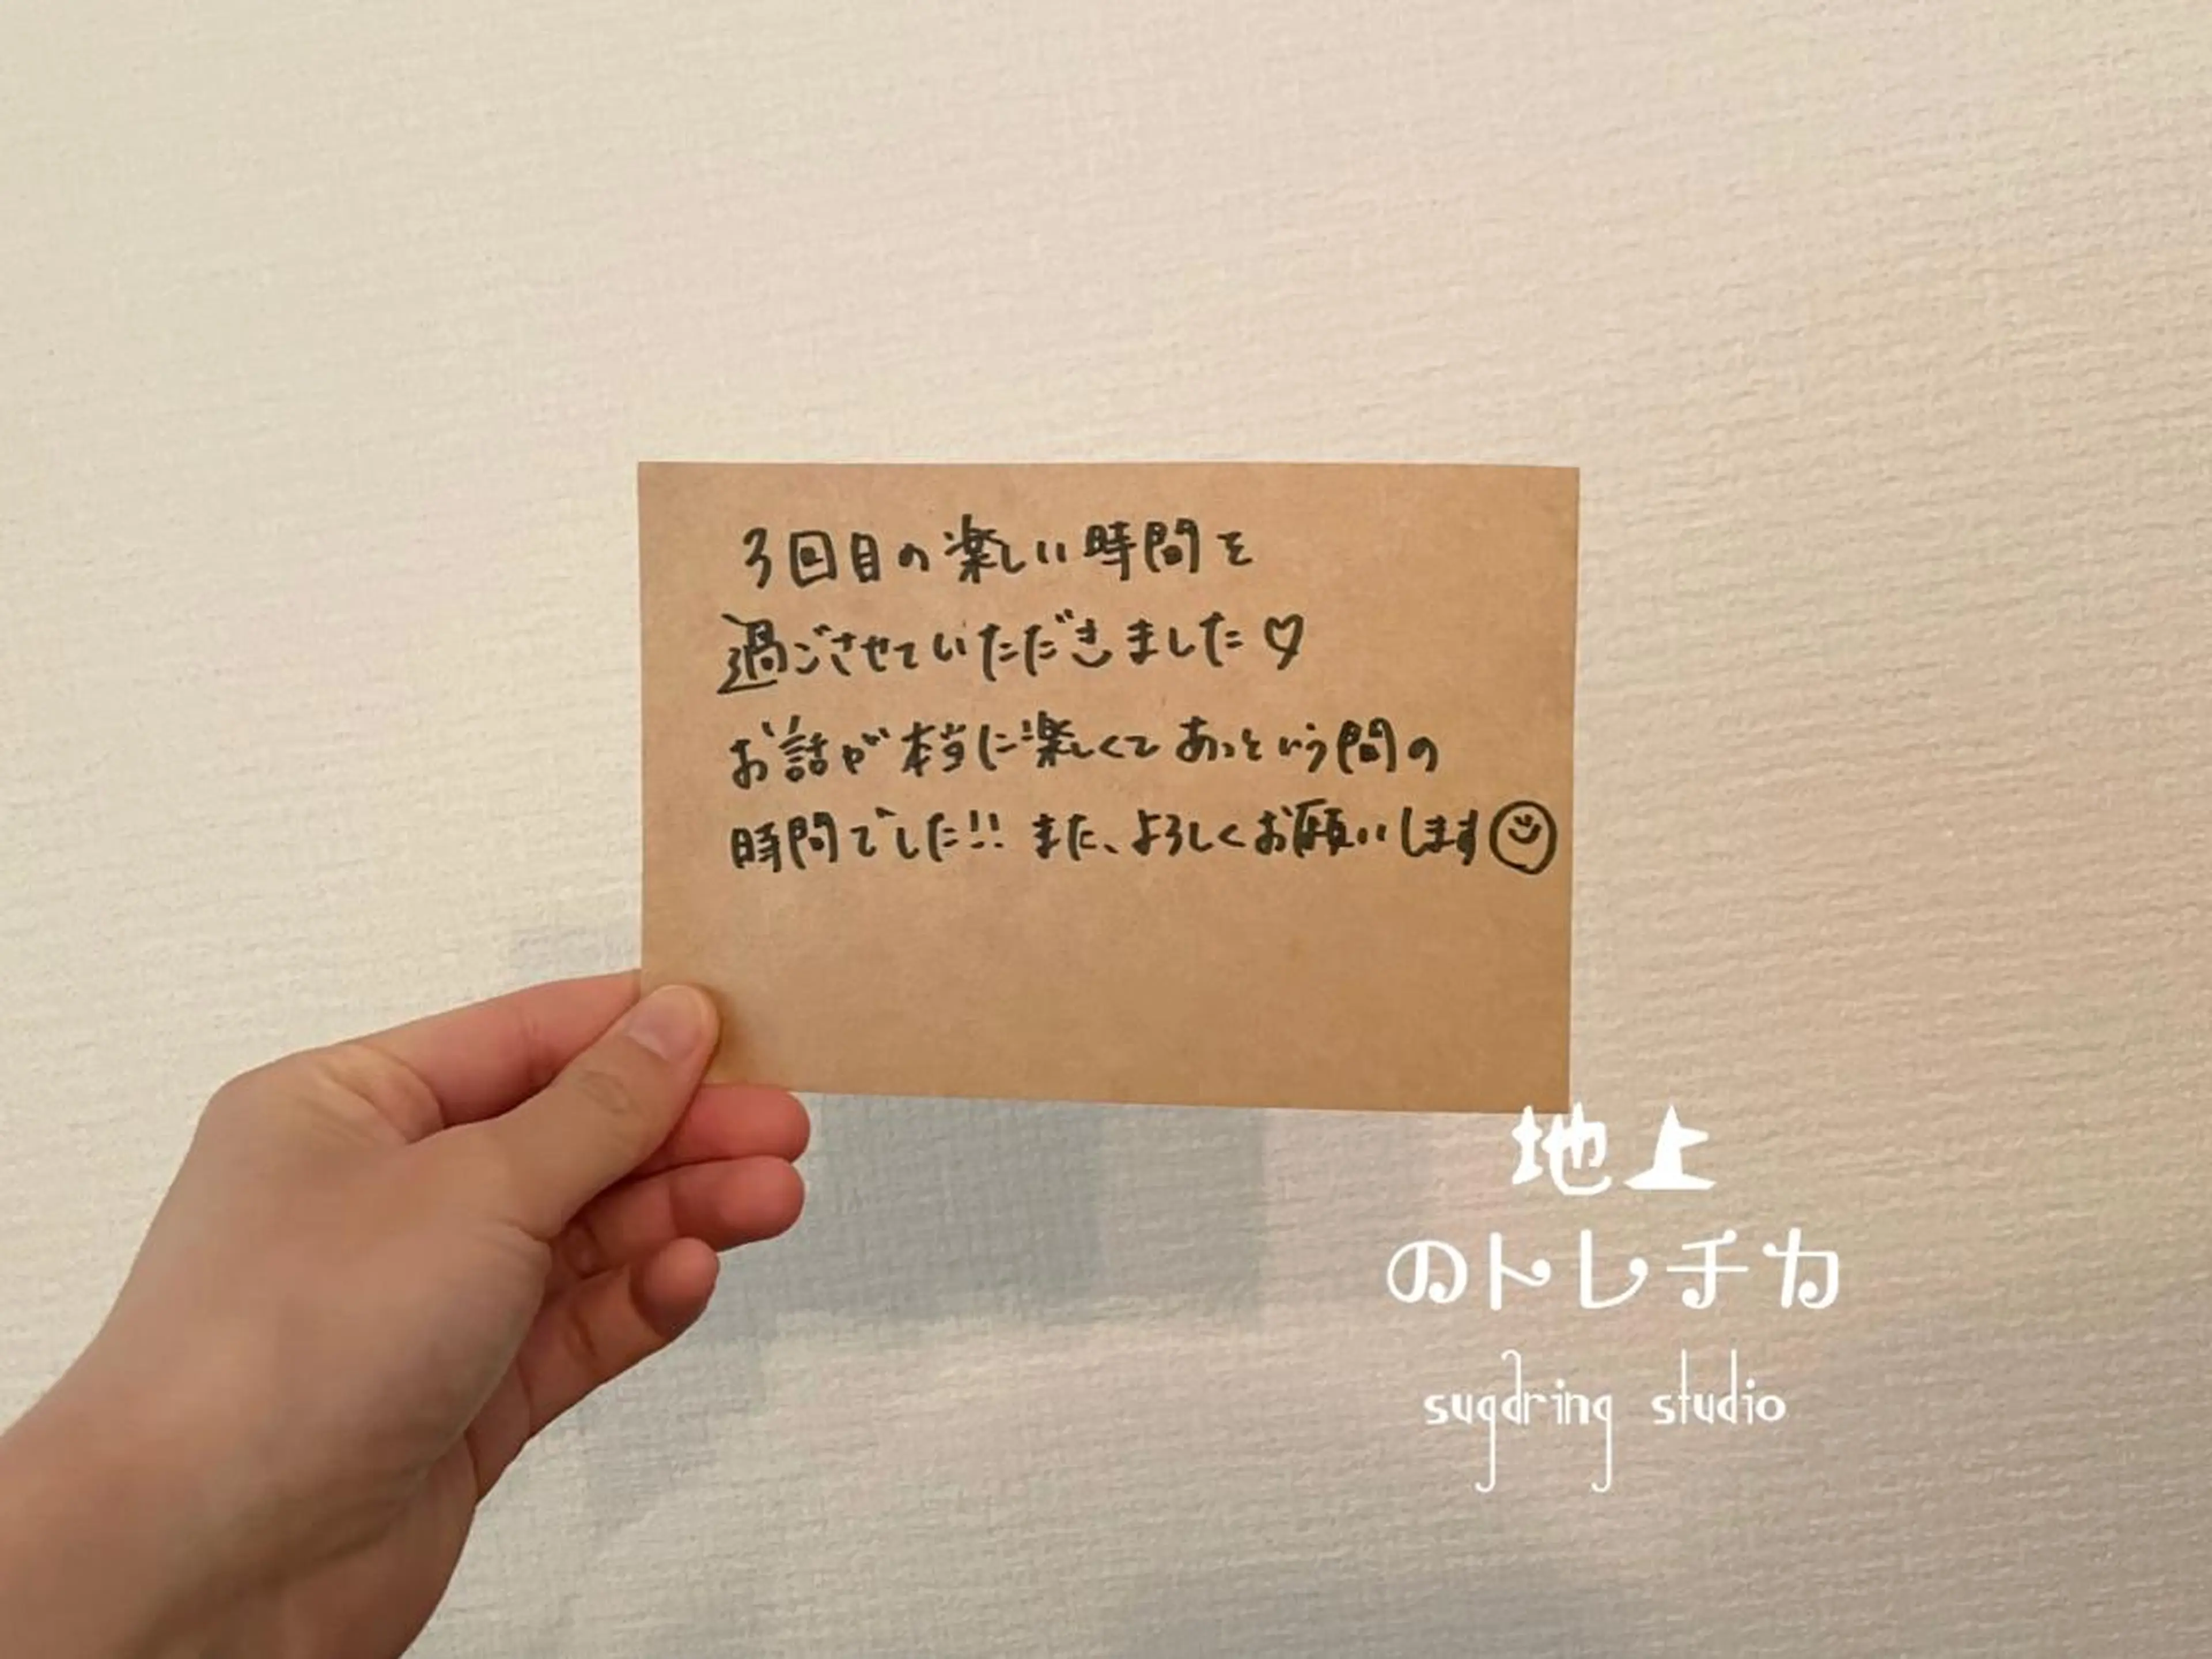 3回目の楽しい時間を
過ごさせていただきました♡
お話が本当に楽しくてあっという間の
時間でした!! また、よろしくお願いします☺
地上
のトレチカ
sugdring studio